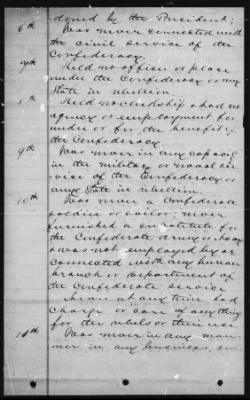 doned by the President;
6th Was never connected with
the civil service of the
Confederacy
7th Held no office or place
under the Confederacy or any
State in rebellion
8th Held no clerkship & had no
agency or employment for
under or for the benefit of
the Confederacy
9th Was never in any capacity
in the military or naval ser-
vice of the Confederacy or
any State in rebellion.
10th Was never a Confederate
soldier or sailor; never
furnished a substitute for
the Confederate army or navy
& was not employed by or
connected with any bureau
branch or department of
the Confederate service
Never at any time had
charge or care of anything
for the rebels or their use
11th Was never in any man-
ner in any business, em